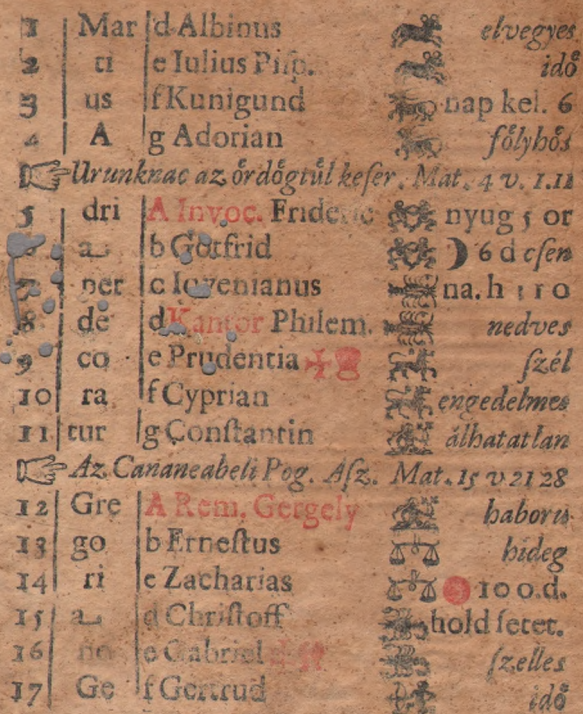 1 Mar d Albinus elvegyes
2 ti e Iulius Piſp. idoͤ
3 us f Kunigund nap kel. 6
4 A g Adorian foͤlyhoͤs
Urunknac az oͤrdoͤgtuͤl keſer. Mat. 4 v. 1.11
5 dri A Invoc. Frideric nyug 5 or
b Gotfrid ☽ 6 d cſen
per c Iovenianus na. h 1 10
8 de d Kantor Philem. nedves
9 co e Prudentia ſzél
10 ra f Cyprian engedelmes
11 tur g Conſtantin álhatatlan
Az Cananeabeli Pog. Aſz. Mat. 15 v 21 28
12 Gre A Remi, Gergely haboru
13 go b Erneſtus hideg
14 ri e Zacharias 10 o.d.
15 a d Chriſtoff hold ſetet.
16 no e Gabriel ſzelles
17 Ge f Gertrud idoͤ